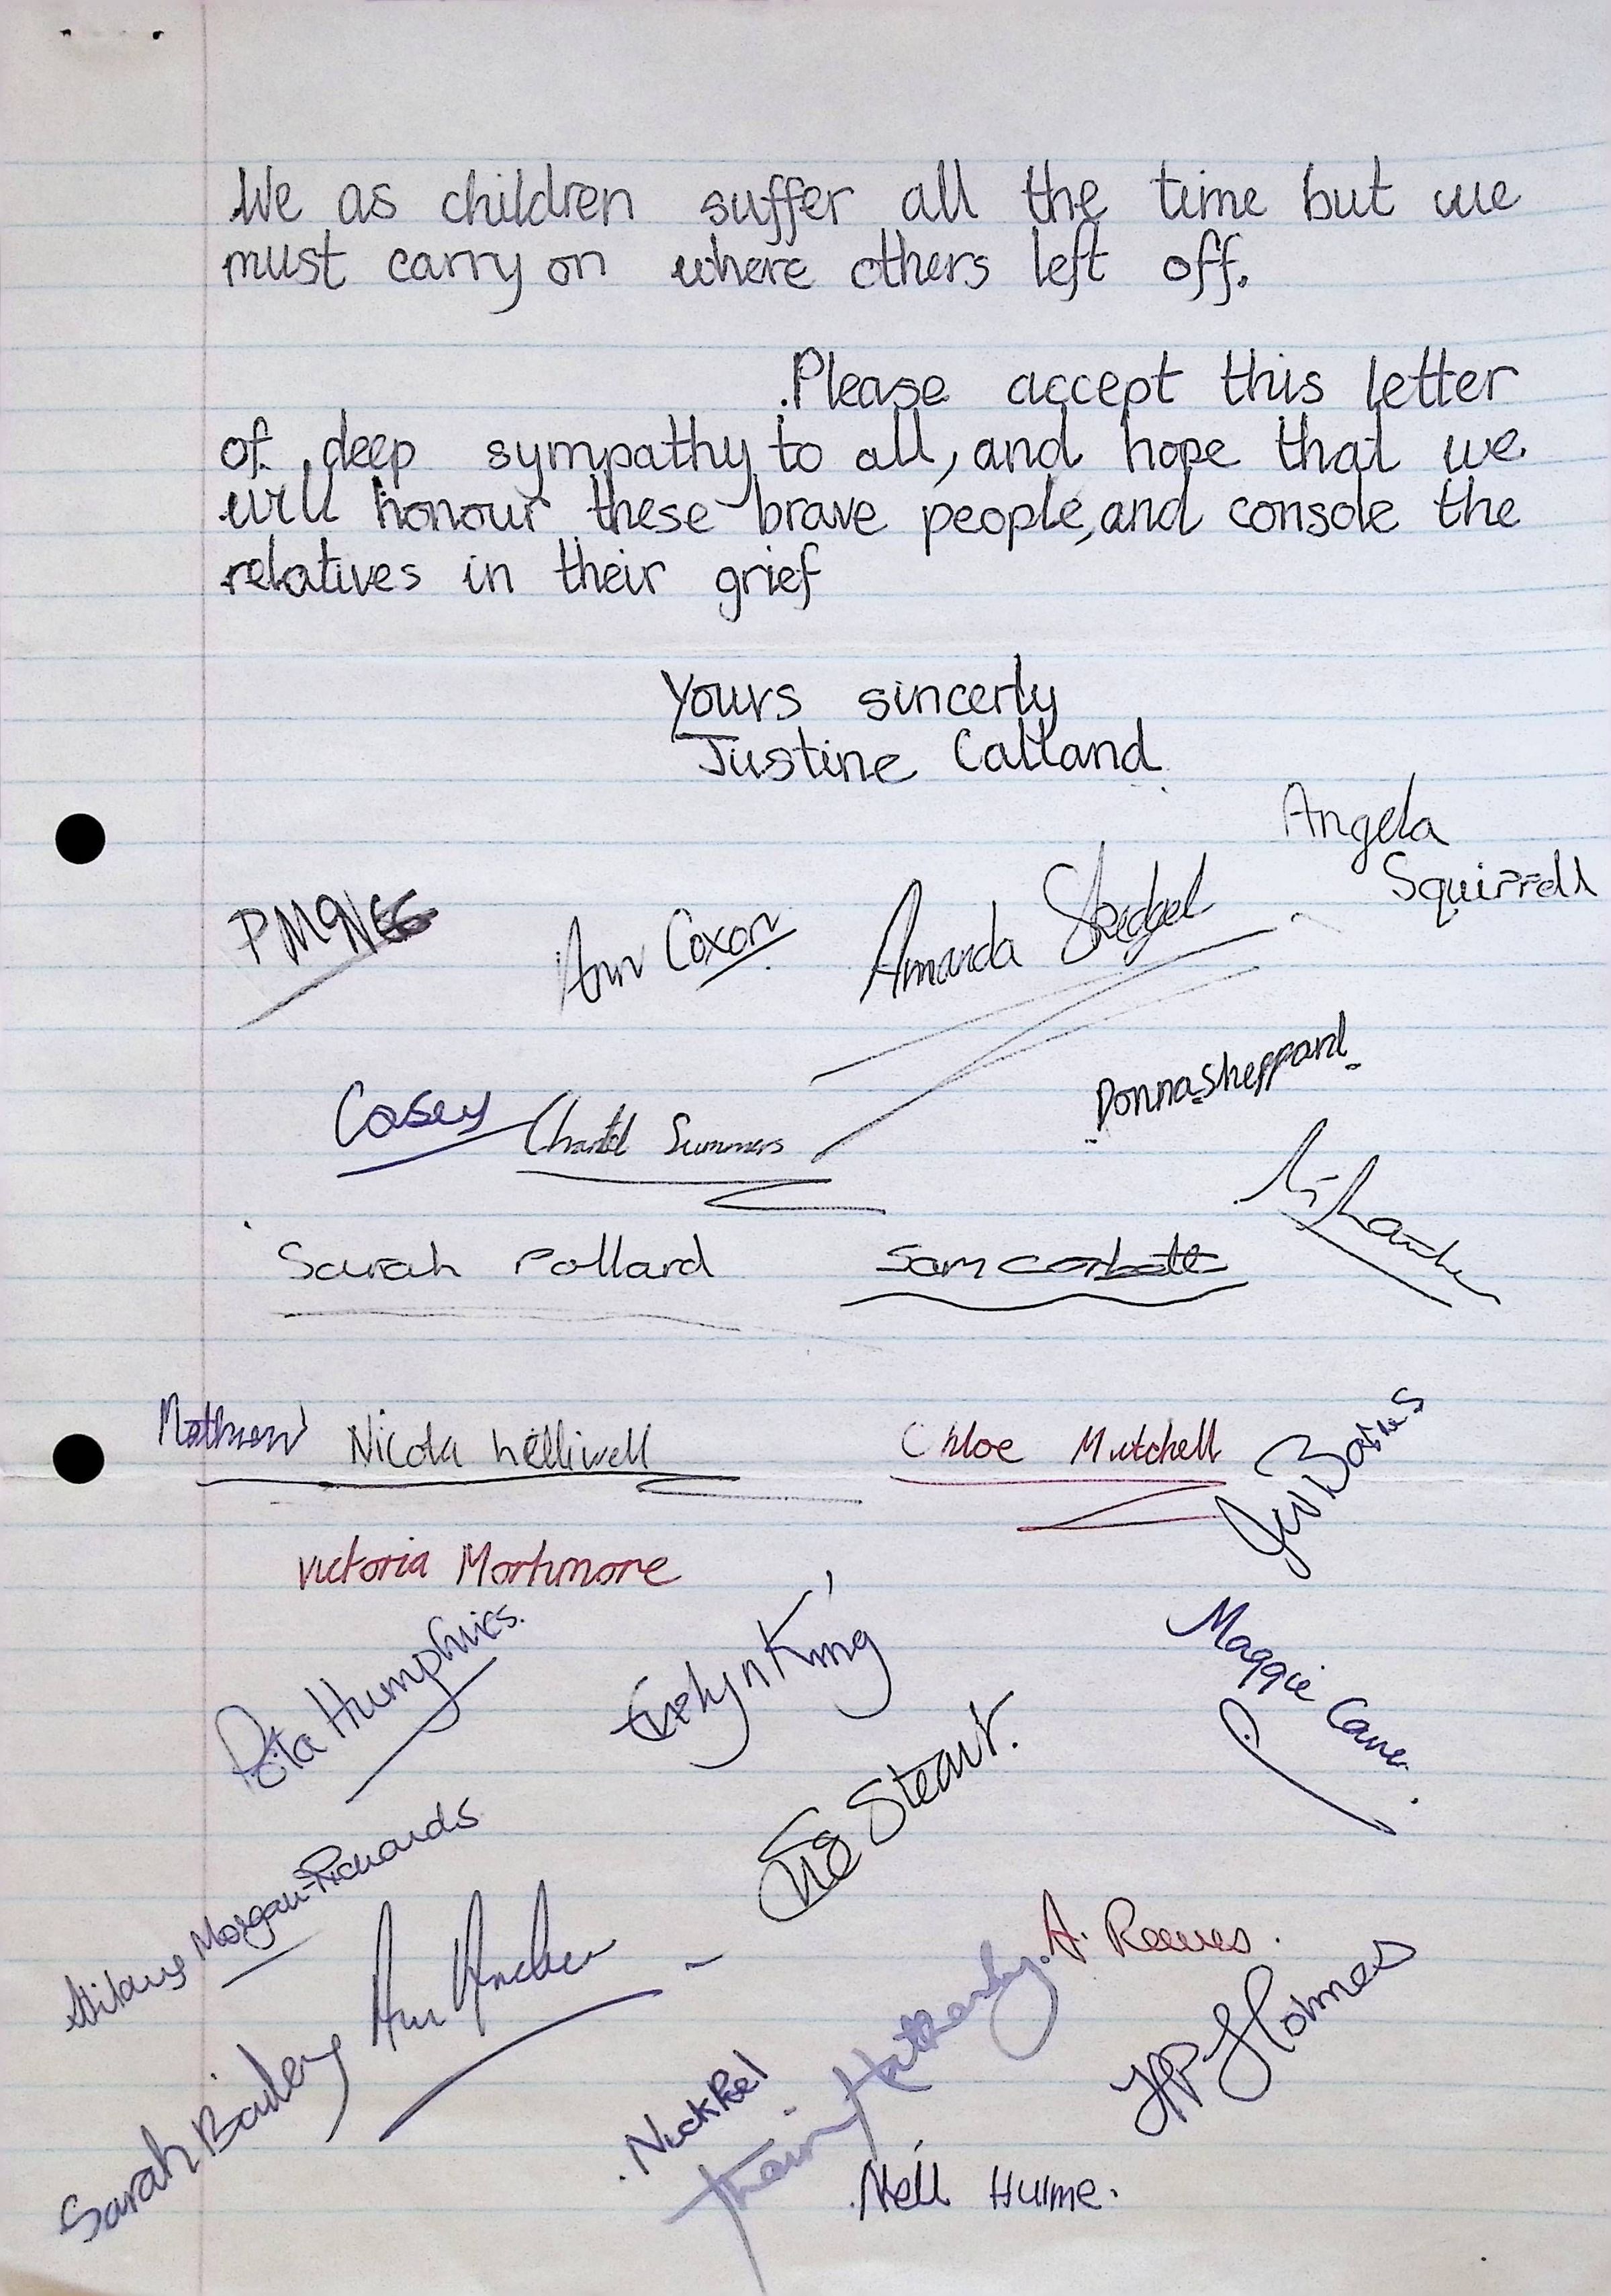 We as children suffer all the time but we
must carry on where others left off.
Please accept this letter
of deep sympathy to all, and hope that we
will honour these brave people, and console the
relatives in their grief
Yours sincerly
Justine Calland
Angela
Squirrell
Ann Coxon
Amanda
Donna Sheppard
Casey
Chantel Summers
Sarah Pollard
Sam Corbett
Mathew
Nicola helliwell
Chloe Mutchell
Barnes
Victoria Mortimore
Rita Humphries.
Evelyn King
Maggie
Morgan-Richards
A. Reeves.
Ann
Holmes
Sarah Bailey
Nick Pel
Nell Hulme.